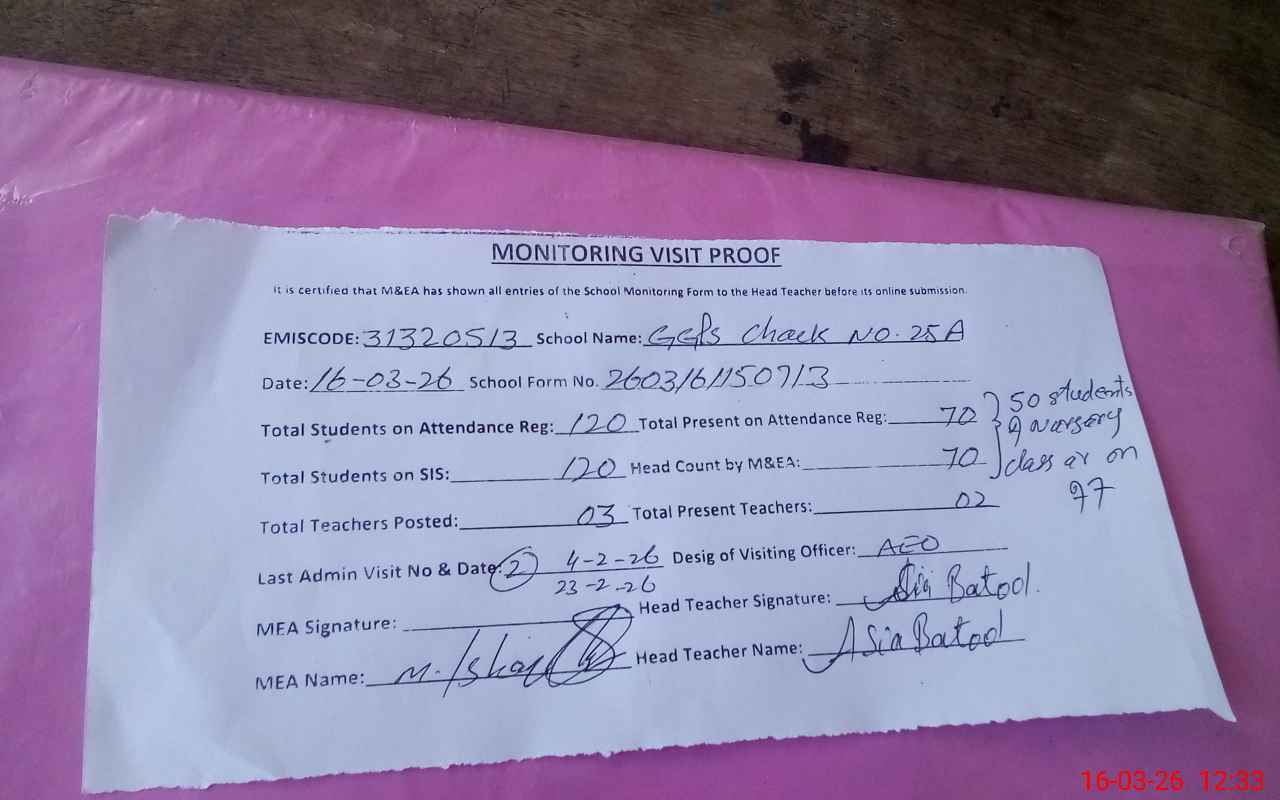 MONITORING VISIT PROOF
It is certified that M&EA has shown all entries of the School Monitoring Form to the Head Teacher before its online submission.
EMISCODE: 31320513 School Name: GGPS Chack NO. 25A
Date: 16-03-26 School Form No.
Total Students on Attendance Reg: 120 Total Present on Attendance Reg: 70
50 students
nursery
class on
Total Students on SIS: 120 Head Count by M&EA: 70
Total Teachers Posted: 03 Total Present Teachers: 02
Last Admin Visit No & Date: 2 4-2-26 Desig of Visiting Officer: AEO
23-2-26
MEA Signature: Head Teacher Signature: Batool.
MEA Name: M. Head Teacher Name: Asia Batool
16-03-26 12:33